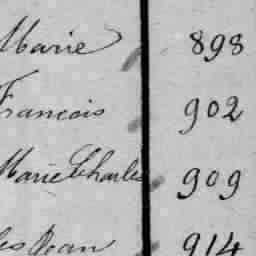 Marie 898
Francois 902
Marie Charles 909
les Jean 914